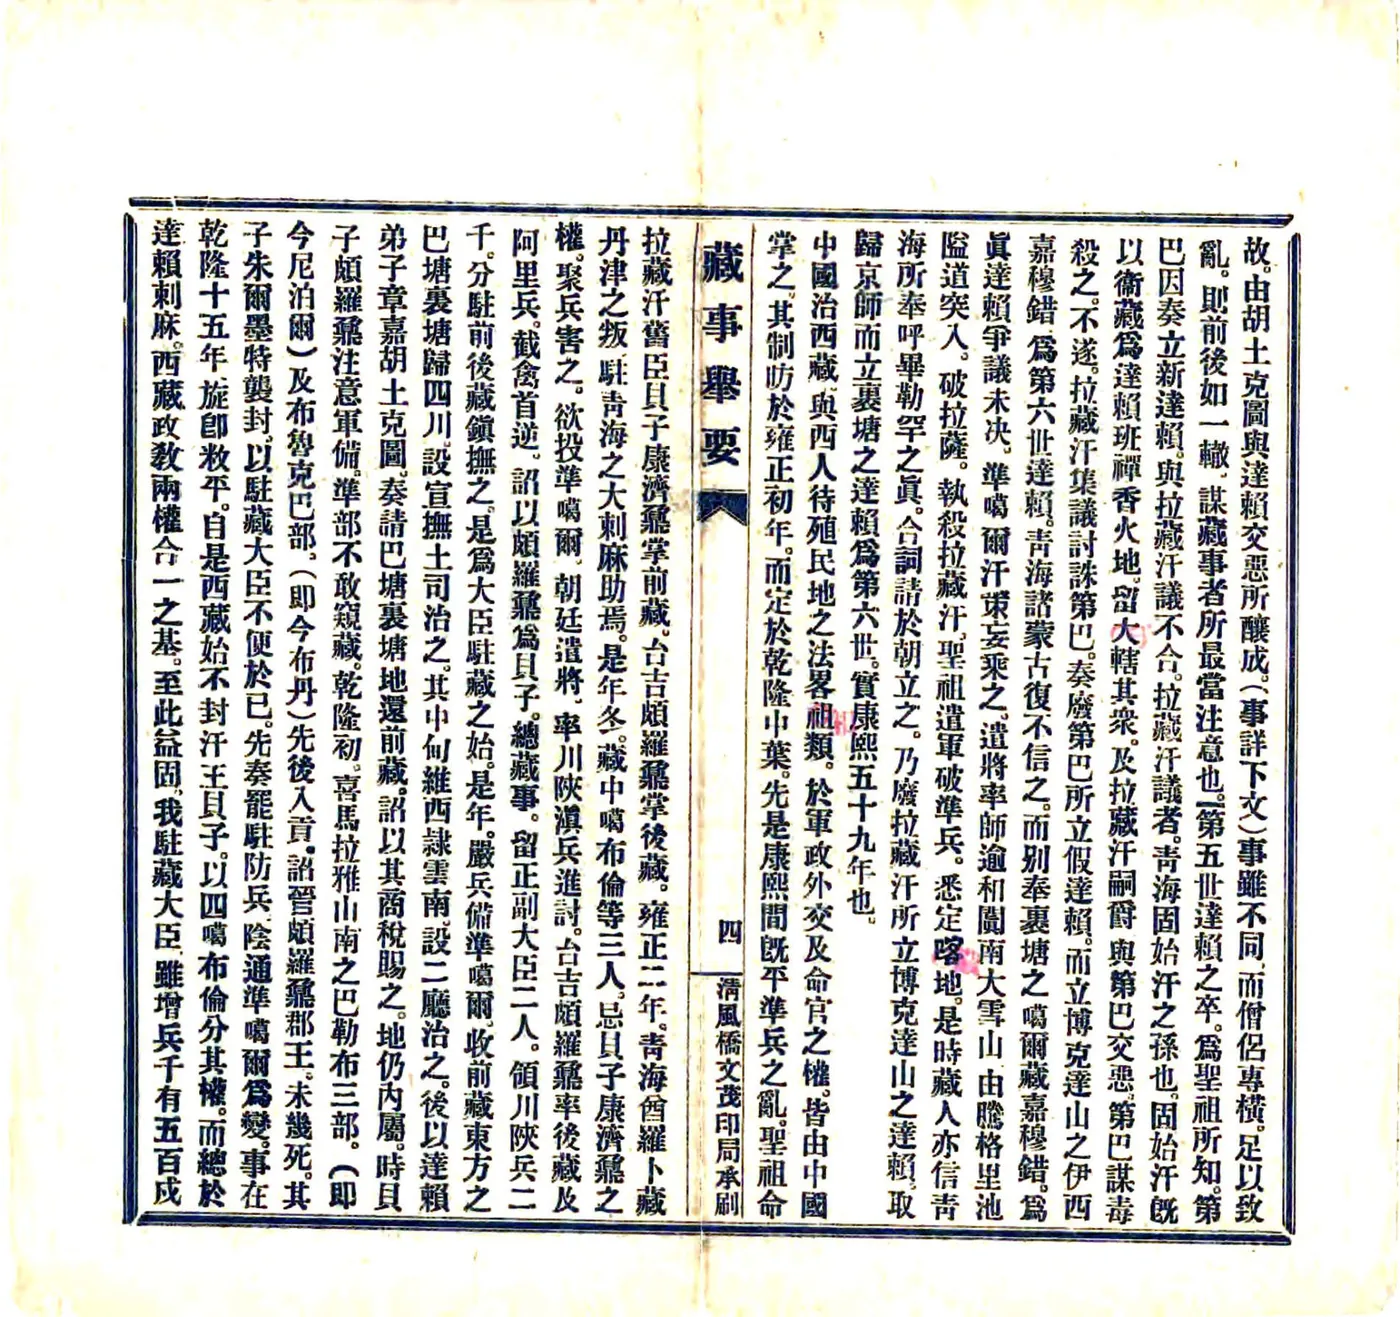 故。由胡土克圖與達賴交惡所釀成。（事詳下文）事雖不同、而僧侶專橫。足以致
亂。則前後如一轍、謀藏事者所最當注意也。第五世達賴之卒。爲聖祖所知。第
巴因奏立新達賴。與拉藏汗議不合。拉藏汗議者。靑海固始汗之孫也。固始汗旣
以衞藏爲達賴班禪香火地。留大轄其衆。及拉藏汗嗣爵、與第巴交惡。第巴謀毒
殺之。不遂。拉藏汗集議討誅第巴。奏廢第巴所立假達賴。而立博克達山之伊西
嘉穆錯、爲第六世達賴。靑海諸蒙古復不信之。而别奉裏塘之噶爾藏嘉穆錯。爲
眞達賴爭議未决。準噶爾汗策妄乘之。遣將率師逾和闐南大雪山、由騰格里池
隘道突入。破拉薩。執殺拉藏汗。聖祖遣軍破準兵。悉定喀地。是時藏人亦信靑
海所奉呼畢勒罕之眞。合詞請於朝立之。乃廢拉藏汗所立博克達山之達賴。取
歸京師而立裏塘之達賴爲第六世。實康熙五十九年也。
中國治西藏、與西人待殖民地之法畧祖類。於軍政外交及命官之權。皆由中國
掌之。其制昉於雍正初年。而定於乾隆中葉。先是康熙間旣平準兵之亂。聖祖命
藏事舉要
四
淸風橋文茂印局承刷
拉藏汗舊臣貝子康濟鼐掌前藏。台吉頗羅鼐掌後藏。雍正二年、靑海酋羅卜藏
丹津之叛、駐靑海之大刺麻助焉。是年冬。藏中噶布倫等三人。忌貝子康濟鼐之
權。聚兵害之。欲投準噶爾、朝廷遣將、率川陝滇兵進討。台吉頗羅鼐率後藏及
阿里兵。截禽首逆。詔以頗羅鼐爲貝子。總藏事。留正副大臣二人。領川陝兵二
千。分駐前後藏鎭撫之。是爲大臣駐藏之始。是年。嚴兵備準噶爾。收前藏東方之
巴塘裏塘歸四川。設宣撫土司治之。其中甸維西隷雲南。設二廳治之。後以達賴
弟子章嘉胡土克圖。奏請巴塘裏塘地還前藏。詔以其商稅賜之。地仍內屬。時貝
子頗羅鼐注意軍備。準部不敢窺藏。乾隆初。喜馬拉雅山南之巴勒布三部。（即
今尼泊爾）及布魯克巴部。（即今布丹）先後入貢。詔晉頗羅鼐郡王。未幾死。其
子朱爾墨特襲封。以駐藏大臣不便於已。先奏罷駐防兵、陰通準噶爾爲變。事在
乾隆十五年旋卽敉平。自是西藏始不封汗王貝子。以四噶布倫分其權。而總於
達賴刺麻。西藏政敎兩權合一之基。至此益固。我駐藏大臣、雖增兵千有五百戍